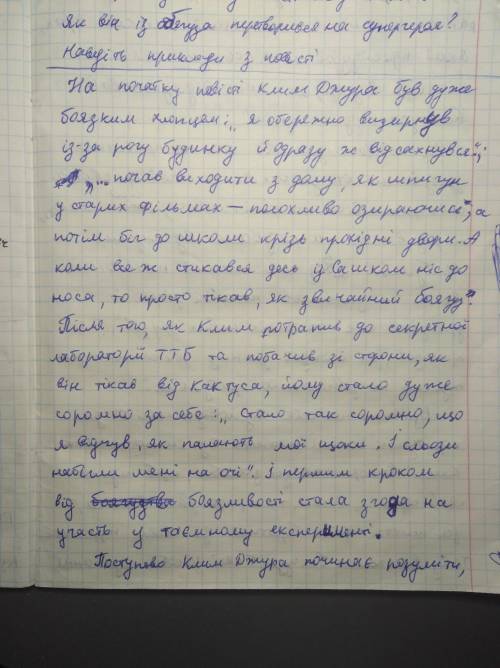 Як він із боягуза перетворився на супергероя?
Наведіть приклади з повісті
На початку повісті Клим Джура був дуже
боязким хлопцем: „я обережно визирнув
із-за рогу будинку й одразу ж відсахнувся";
„... почав виходити з дому, як шпигун
у старих фільмах — полохливо озираючись", а
потім біг до школи крізь прохідні двори. А
коли все ж стикався десь із Вашком ніс до
носа, то просто тікав, як звичайний боягуз".
Після того, як Клим потрапив до секретної
лабораторії ТТБ та побачив зі сторони, як
він тікав від Кактуса, йому стало дуже
соромно за себе: „Стало так соромно, що
я відчув, як палають мої щоки. І сльози
набігли мені на очі". І першим кроком
від боягузтва боязливості стала згода на
участь у таємному експерименті.
Поступово Клим Джура починає розуміти,